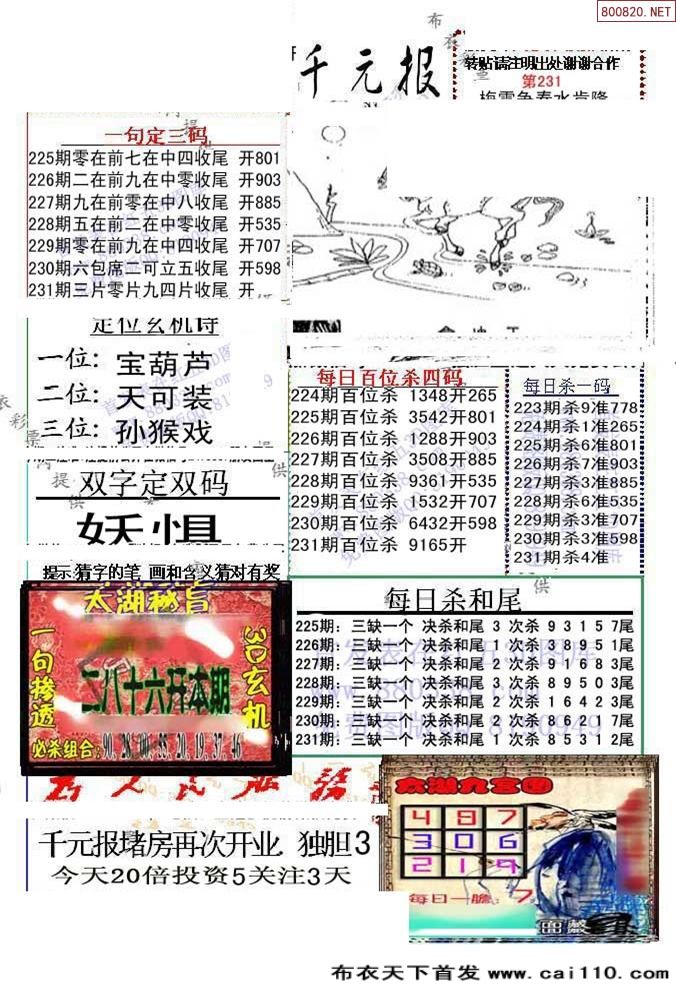 800820.NET
千元报
转贴请注明出处谢谢合作
第231
一句定三码
225期零在前七在中四收尾 开801
226期二在前九在中零收尾 开903
227期九在前零在中八收尾 开885
228期五在前二在中零收尾 开535
229期零在前九在中四收尾 开707
230期六包席二可立五收尾 开598
231期三片零片九四片收尾 开
定位玄机诗
一位: 宝葫芦
二位: 天可装
三位: 孙猴戏
双字定双码
妖惧
提示:猜字的笔 画和含义猜对有奖
每日百位杀四码
224期百位杀 1348开265
225期百位杀 3542开801
226期百位杀 1288开903
227期百位杀 3508开885
228期百位杀 9361开535
229期百位杀 1532开707
230期百位杀 6432开598
231期百位杀 9165开
每日杀一码
223期杀9准778
224期杀1准265
225期杀6准801
226期杀7准903
227期杀3准885
228期杀6准535
229期杀3准707
230期杀3准598
231期杀4准
太湖秘旨
一句掺透
3D玄机
二八十六开本期
必杀组合:90.28.00.33.20.19.37.46
每日杀和尾
225期: 三缺一个 决杀和尾 3 次杀 9 3 1 5 7尾
226期: 三缺一个 决杀和尾 1 次杀 3 8 9 5 1尾
227期: 三缺一个 决杀和尾 2 次杀 9 1 6 8 3尾
228期: 三缺一个 决杀和尾 3 次杀 8 9 5 0 3尾
229期: 三缺一个 决杀和尾 2 次杀 1 6 4 2 3尾
230期: 三缺一个 决杀和尾 2 次杀 8 6 2 1 7尾
231期: 三缺一个 决杀和尾 1 次杀 8 5 3 1 2尾
千元报堵房再次开业 独胆3
今天20倍投资5关注3天
太湖九宫图
4 8 7
3 0 6
2 1 9
每日一胆: 7
布衣天下首发 www.cai110.com